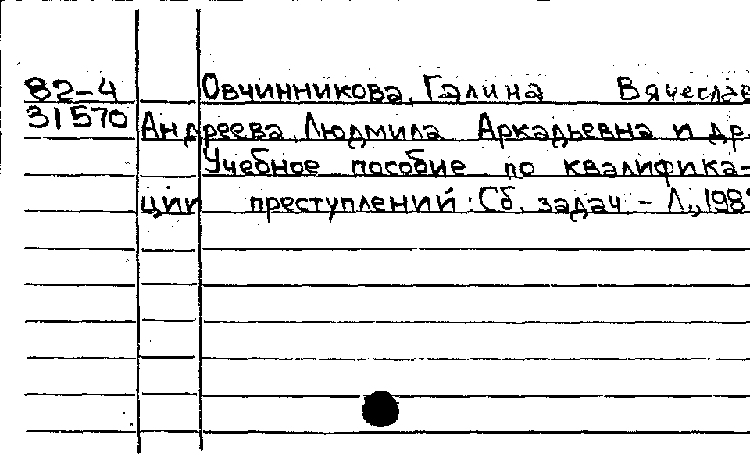 82-4 Овчинникова, Галина Вячеслав
31570 Андреева, Людмила Аркадьевна и др.
Учебное пособие по квалифика-
ции преступлений: Сб. задач. - Л., 198